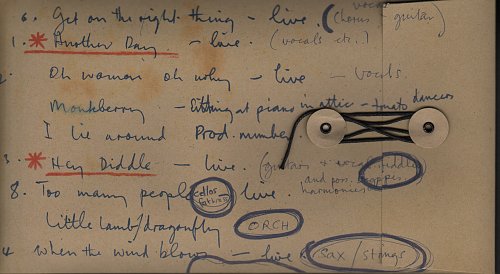 vocals
6. Get on the right thing - live. (chorus - guitar)
1. * Another Day - live. (vocals etc.)
2. Oh woman oh why - live - vocals.
Monkberry - sitting at piano in attic - tomato dancers
I lie around Prod. number.
3. * Hey Diddle - live. (guitars + vocal fiddle
and poss.
harmonies
8. Too many people cellos live.
Little Lamb/dragonfly ORCH
4 When the wind blows - live sax/strings